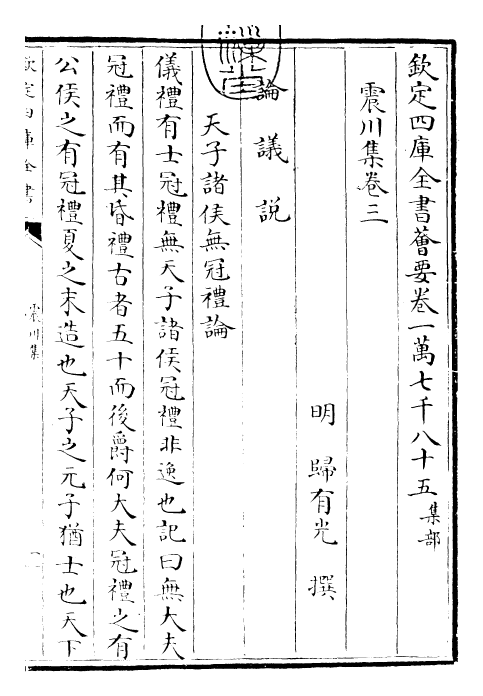 欽定四庫全書薈要卷一萬七千八十五 集部
震川集卷三
明 歸有光 撰
論 議 説
天子諸侯無冠禮論
儀禮有士冠禮無天子諸侯冠禮非逸也記曰無大夫
冠禮而有其昏禮古者五十而後爵何大夫冠禮之有
公侯之有冠禮夏之末造也天子之元子猶士也天下
欽定四庫全書
震川集